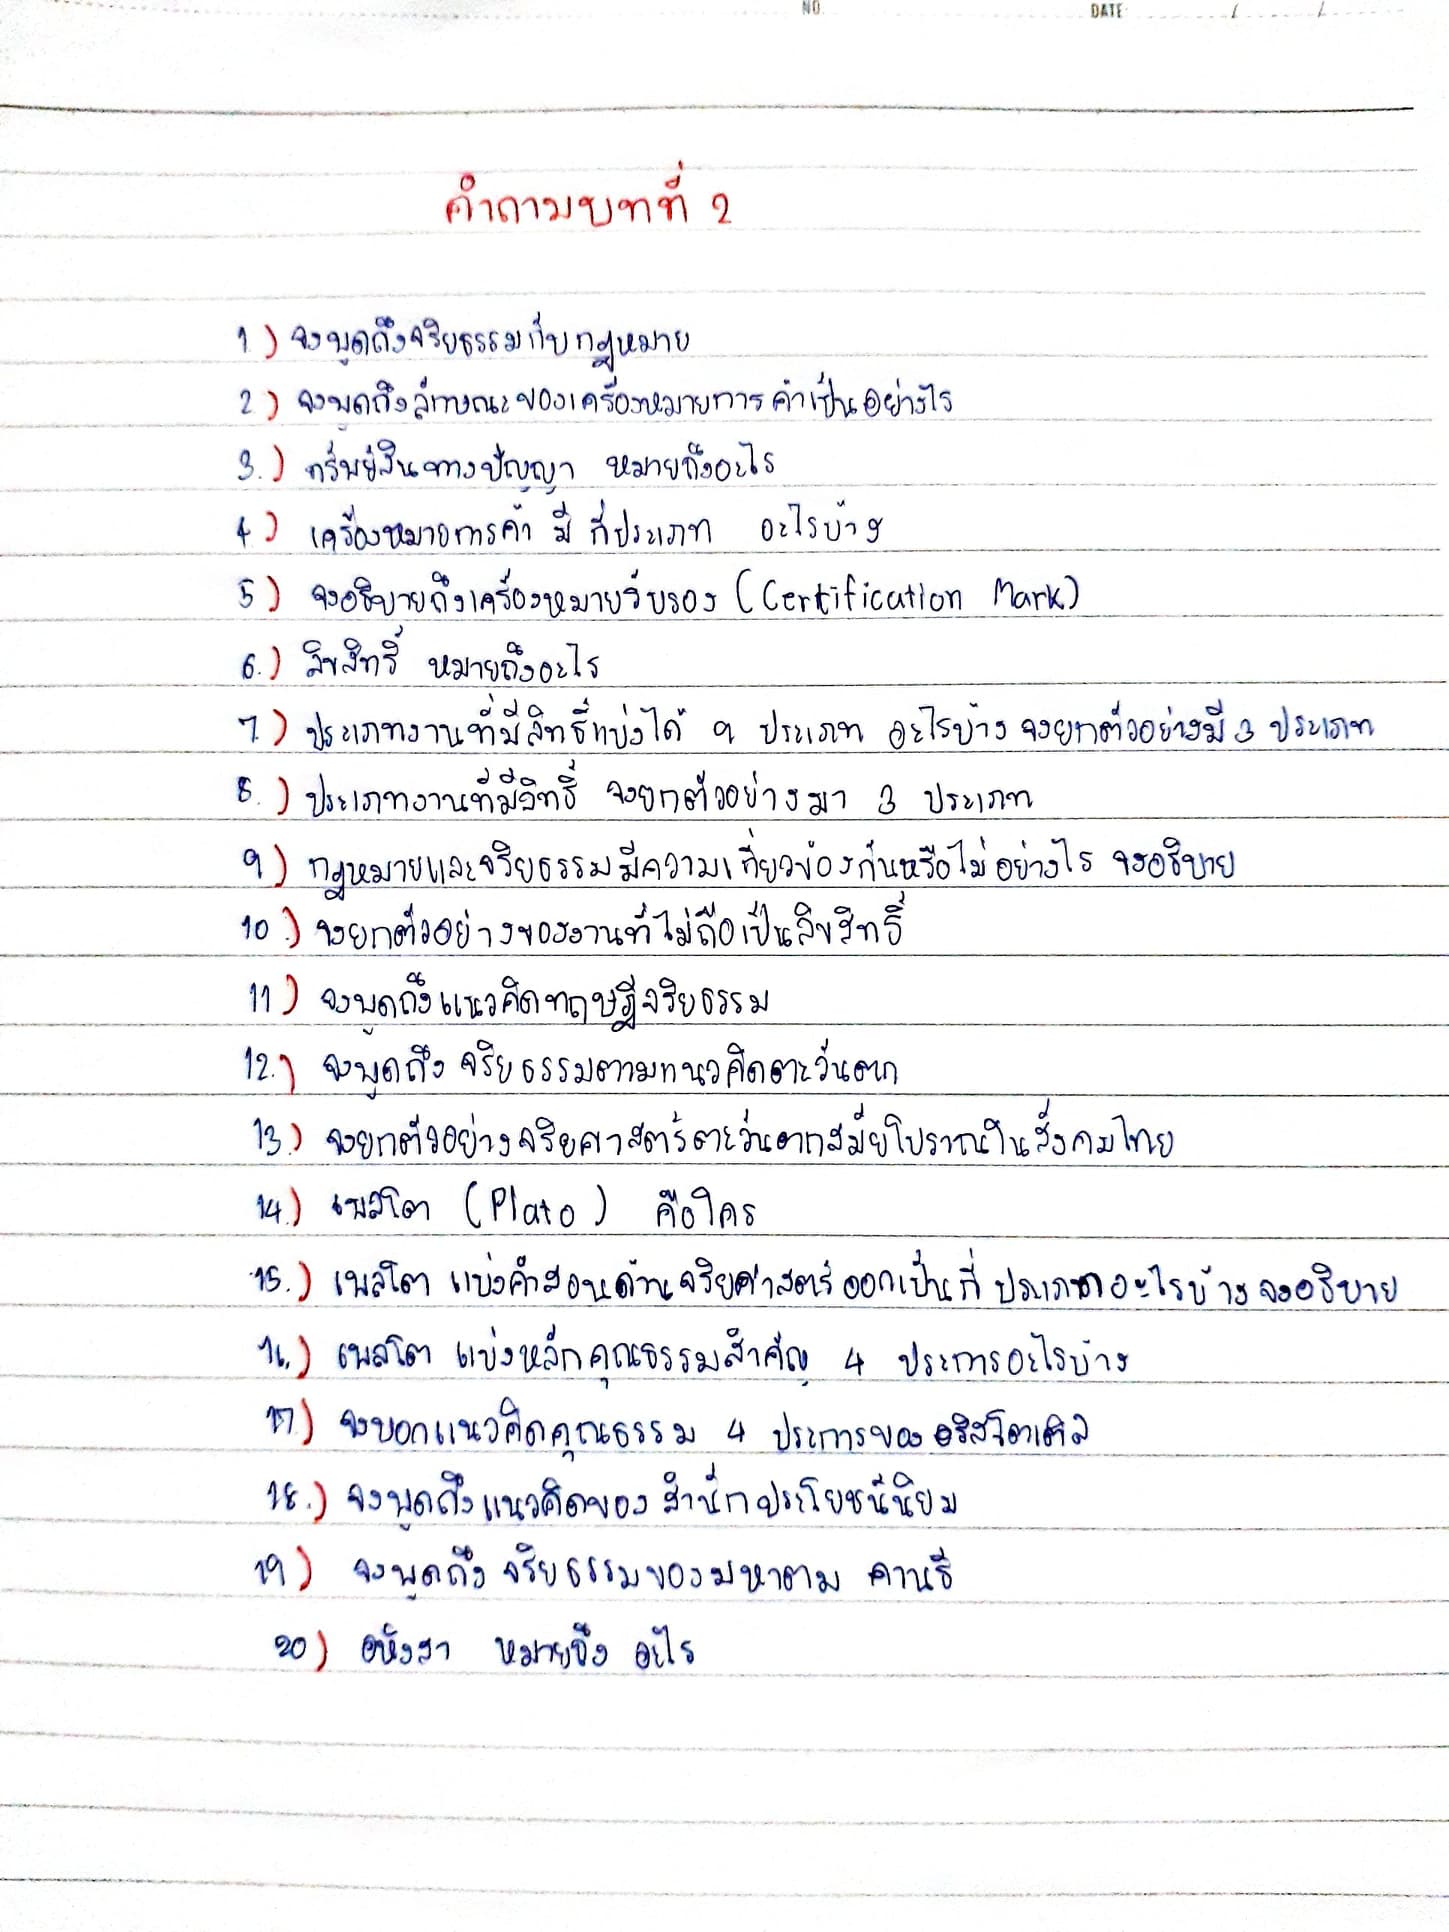 NO.
DATE / /
คำถามบทที่ 2
1) จงพูดถึงจริยธรรมกับกฎหมาย
2) จงพูดถึงลักษณะของเครื่องหมายการค้าเป็นอย่างไร
3.) ทรัพย์สินทางปัญญา หมายถึงอะไร
4) เครื่องหมายการค้า มี กี่ประเภท อะไรบ้าง
5) จงอธิบายถึงเครื่องหมายรับรอง (Certification Mark)
6.) ลิขสิทธิ์ หมายถึงอะไร
7.) ประเภทงานที่มีลิทธิ์แบ่งได้ 9 ประเภท อะไรบ้าง จงยกตัวอย่างมี 3 ประเภท
8.) ประเภทงานที่มีลิทธิ์ จงยกตัวอย่างมา 3 ประเภท
9) กฎหมายและจริยธรรมมีความเกี่ยวข้องกันหรือไม่ อย่างไร จงอธิบาย
10.) จงยกตัวอย่างของงานที่ไม่ถือเป็นลิขสิทธิ์
11) จงพูดถึงแนวคิดทฤษฎีจริยธรรม
12.) จงพูดถึง จริยธรรมตามแนวคิดตะวันตก
13.) จงยกตัวอย่างจริยศาสตร์ตะวันตกสมัยโบราณในสังคมไทย
14.) เพลโต (Plato) คือใคร
15.) เพลโต แบ่งคำสอนด้านจริยศาสตร์ออกเป็นกี่ ประเภทอะไรบ้าง จงอธิบาย
16.) เพลโต แบ่งหลักคุณธรรมสำคัญ 4 ประการอะไรบ้าง
17.) จงบอกแนวคิดคุณธรรม 4 ประการของ อริสโตเติล
18.) จงพูดถึงแนวคิดของ สำนักประโยชน์นิยม
19) จงพูดถึง จริยธรรมของมหาตมา คานธี
20) อหิงสา หมายถึง อะไร